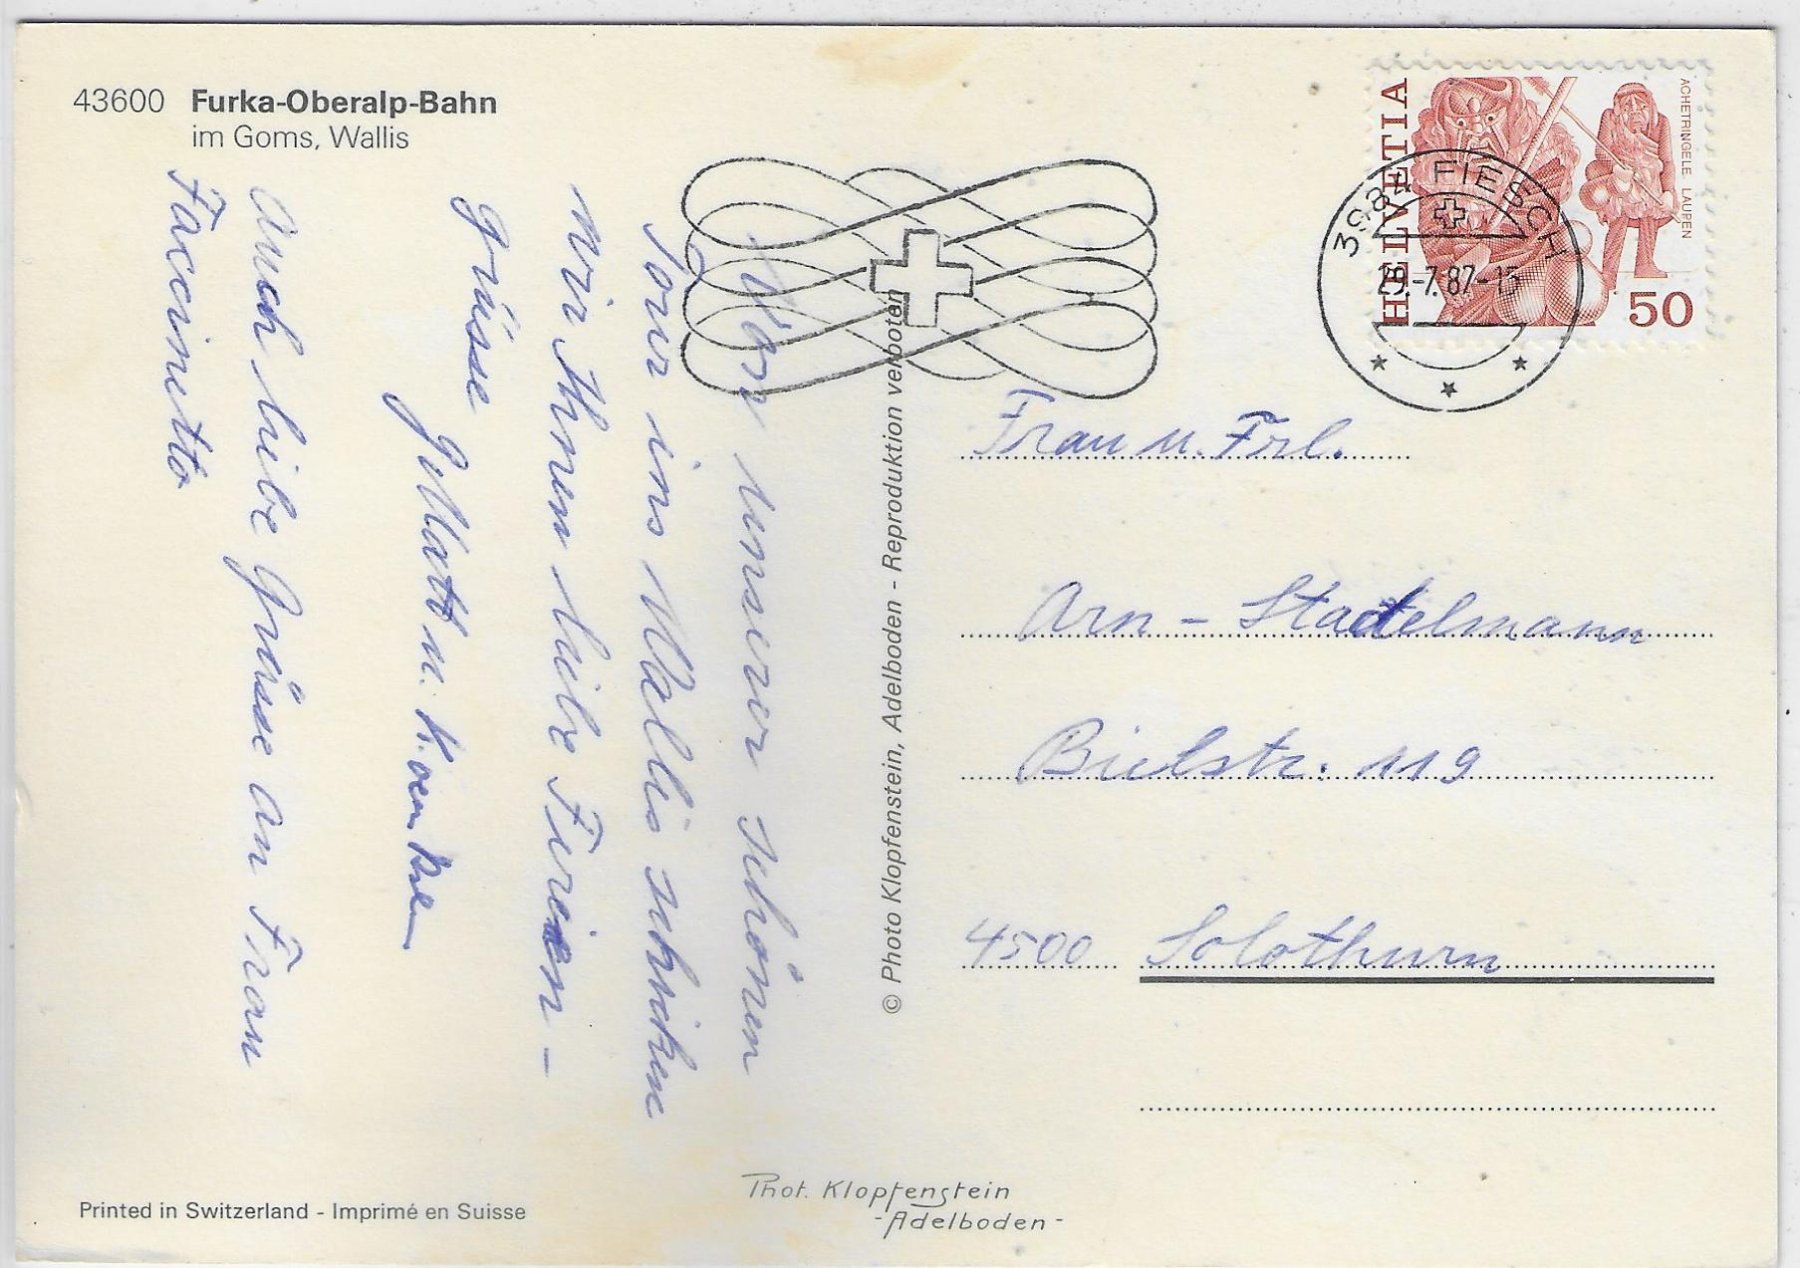 43600 Furka-Oberalp-Bahn
im Goms, Wallis
Von unserer schönen
Tour ins Wallis schicken
wir Ihnen liebe Ferien-
grüsse
auch liebe Grüsse an Frau
Faccinetto
© Photo Klopfenstein, Adelboden - Reproduktion verboten
HELVETIA
ACHETRINGELE LAUPEN
50
3984 FIESCH
29.-7.87-15
Frau u. Frl.
Arn - Stadelmann
Bielstr. 119
4500 Solothurn
Phot. Klopfenstein
-Adelboden-
Printed in Switzerland - Imprimé en Suisse